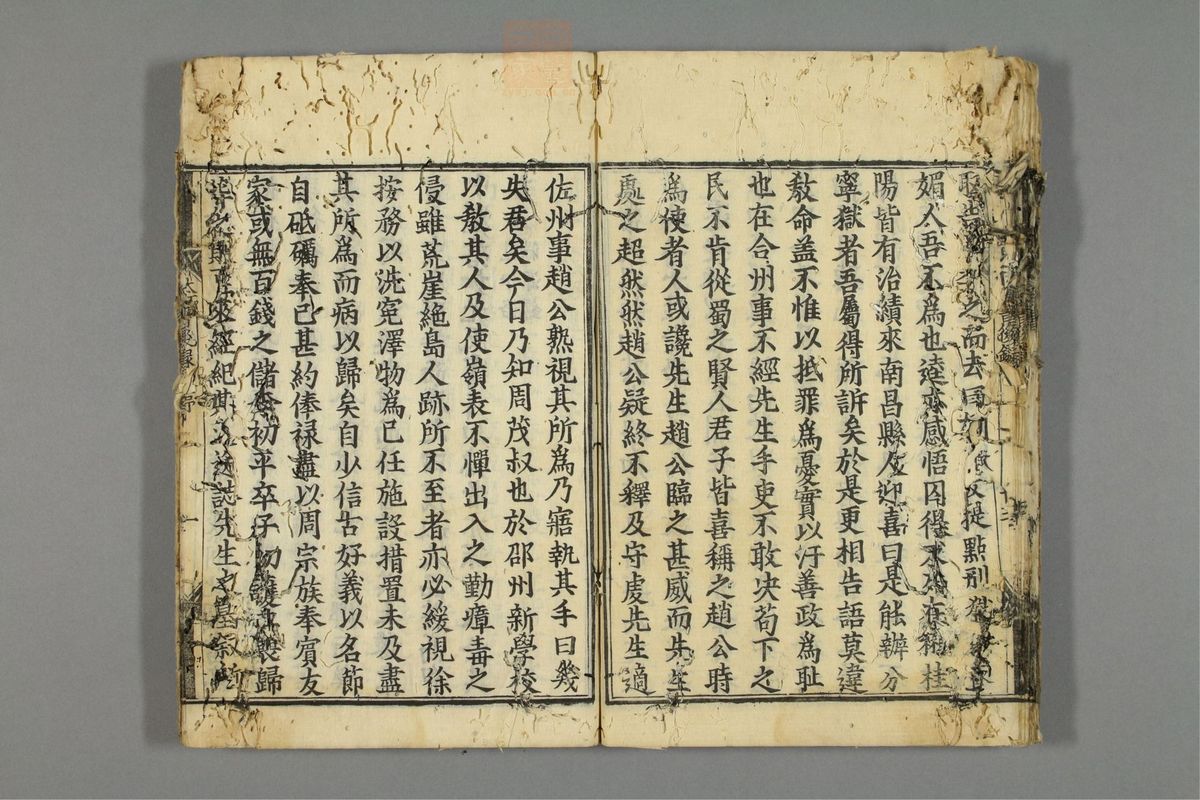 之而去
媚人吾不為也逵亦感悟囚得不死在郴桂
陽皆有治績來南昌縣人迎喜曰是能辦分
寧獄者吾屬得所訴矣於是更相告語莫違
教命盖不惟以抵罪為憂實以汙善政為耻
也在合州事不經先生手吏不敢决苟下之
民不肯從蜀之賢人君子皆喜稱之趙公時
為使者人或讒先生趙公臨之甚威而先生
處之超然然趙公疑終不釋及守虔先生適
佐州事趙公熟視其所為乃寤執其手曰幾
失君矣今日乃知周茂叔也於邵州新學校
以教其人及使嶺表不憚出入之勤瘴毒之
侵雖荒崖絶島人跡所不至者亦必緩視徐
按務以洗寃澤物為己任施設措置未及盡
其所為而病以歸矣自少信古好義以名節
自砥礪奉己甚約俸禄盡以周宗族奉賔友
家或無百錢之儲李初平卒子幼護其喪歸
来經紀其